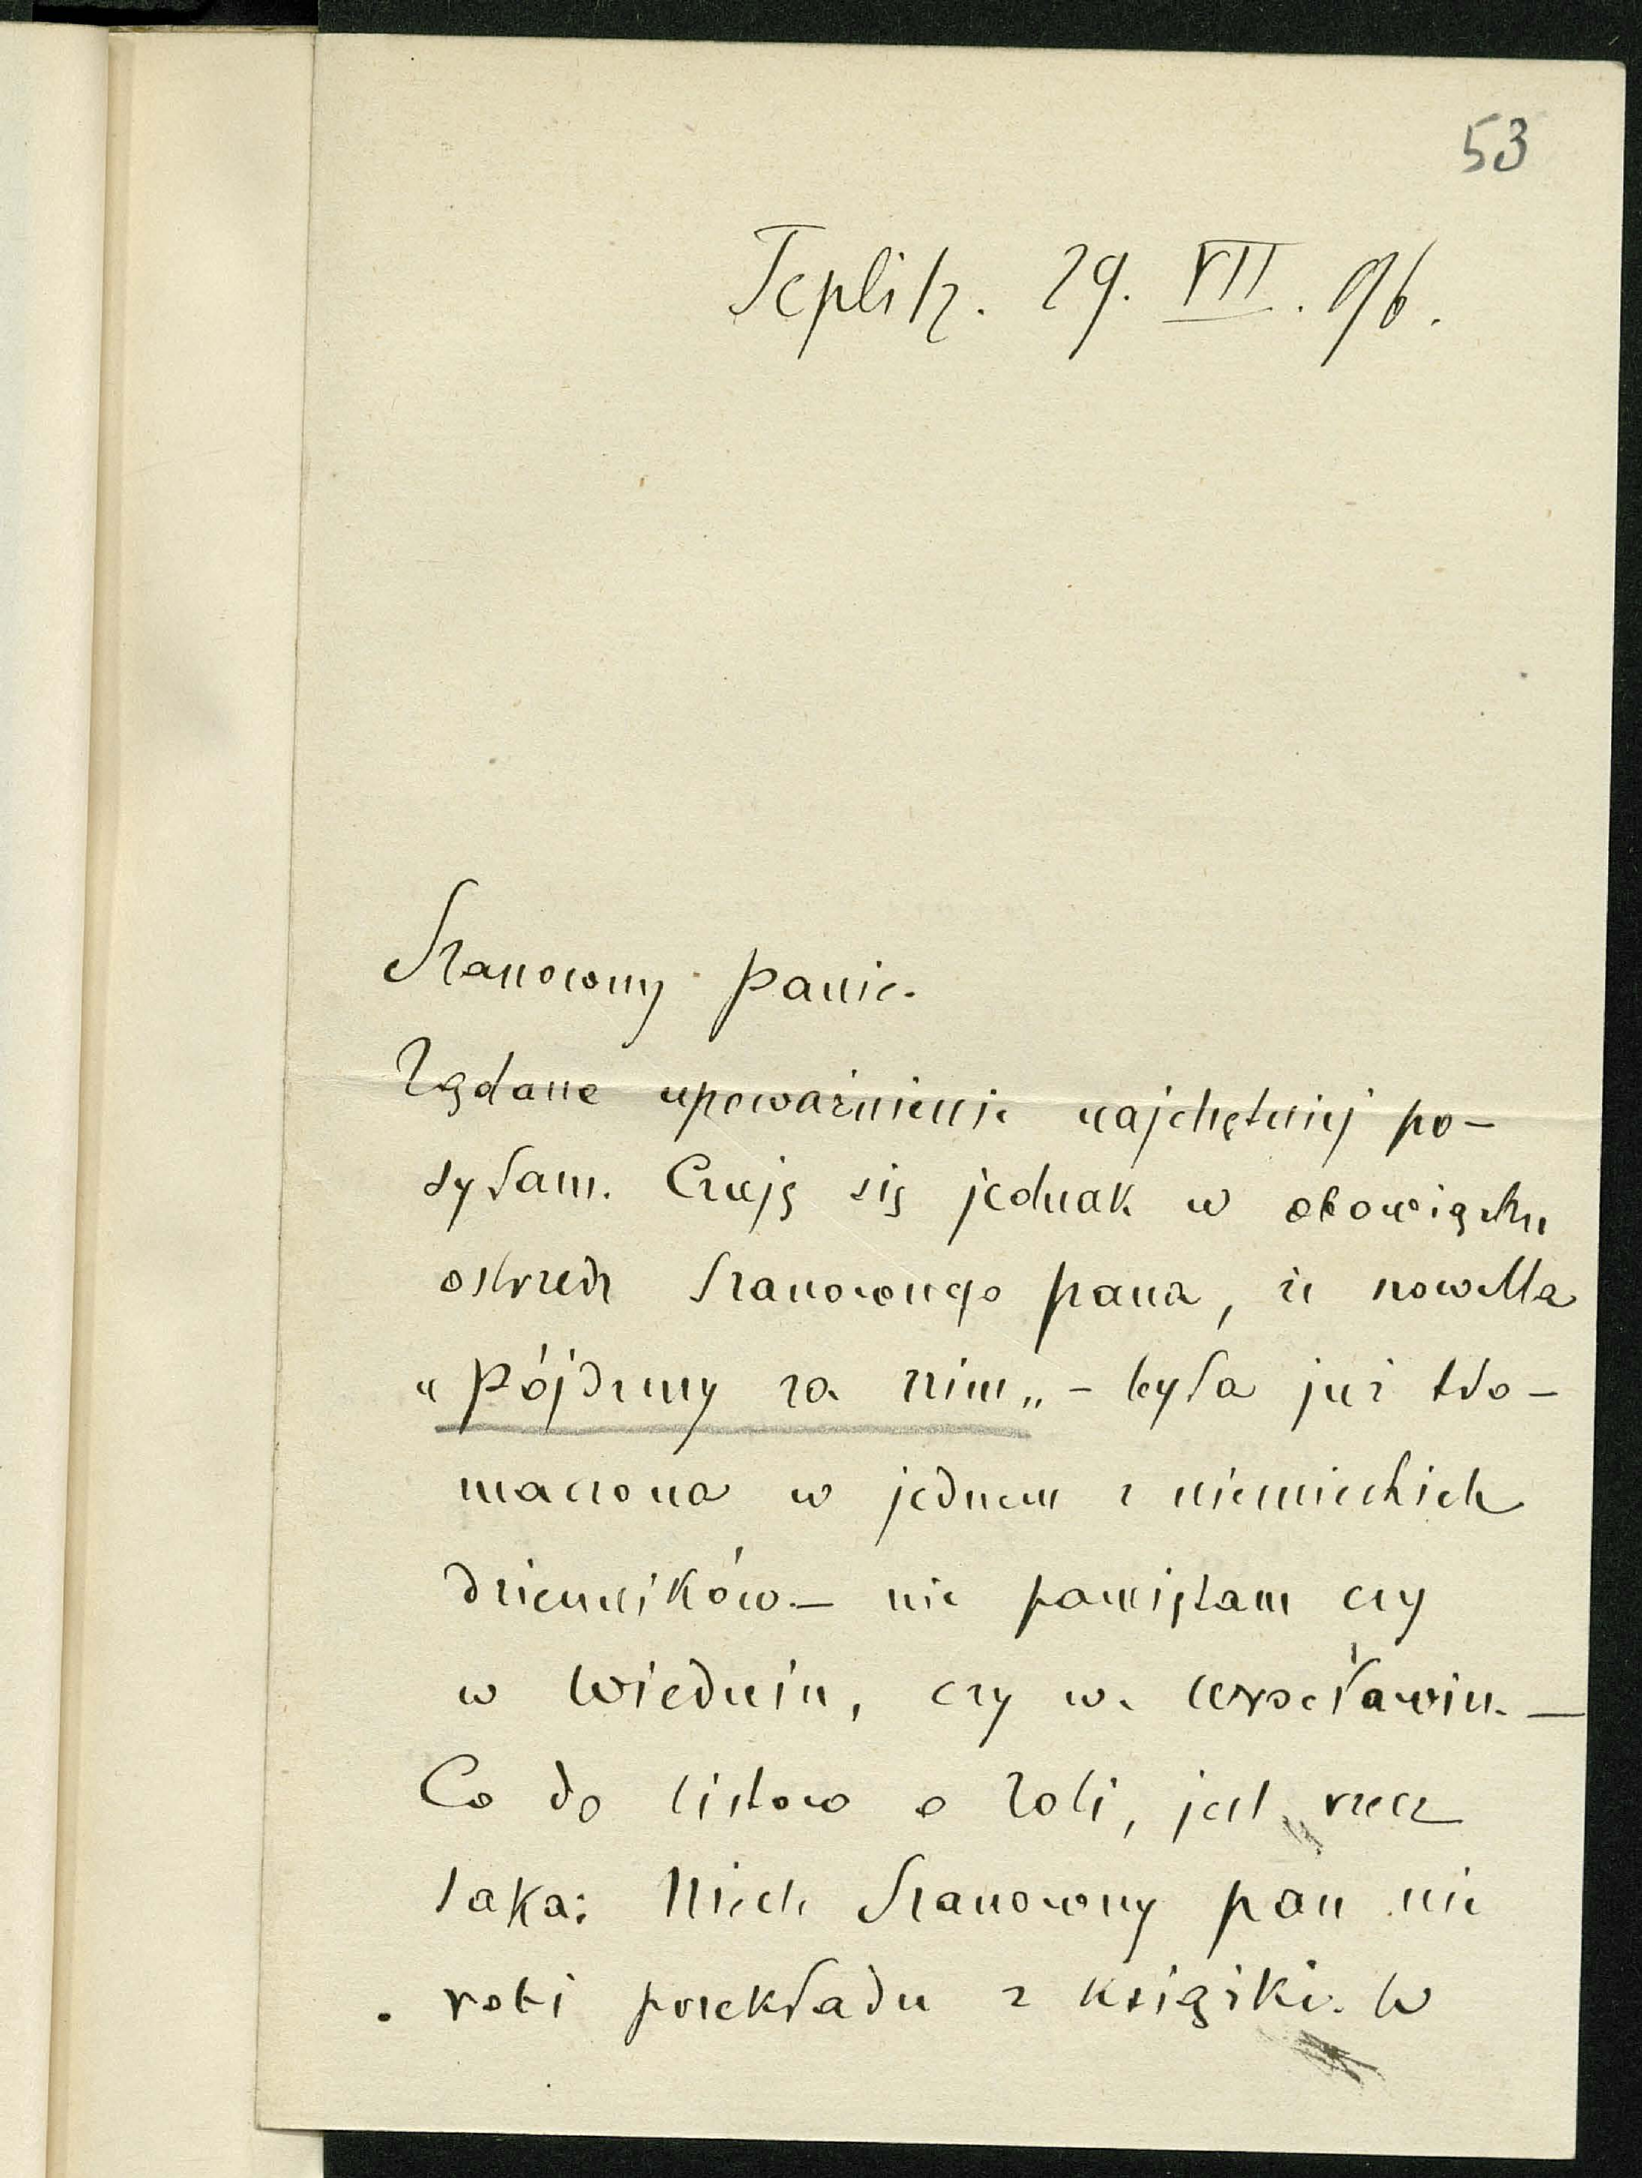 53
Teplitz. 29. VII. 96.
Szanowny Panie.
Żądane upoważnienie najchętniej po-
syłam. Czuję się jednak w obowiązku
ostrzedz Szanownego pana, że nowella
„Pójdzmy za nim„ - była już tło-
maczona w jednem z niemieckich
dzienników. - nie pamiętam czy
w Wiedniu, czy w. Wrocławiu. -
Co do listów o Zoli, jest rzecz
taka: Niech Szanowny pan nie
robi przekładu z książki. W